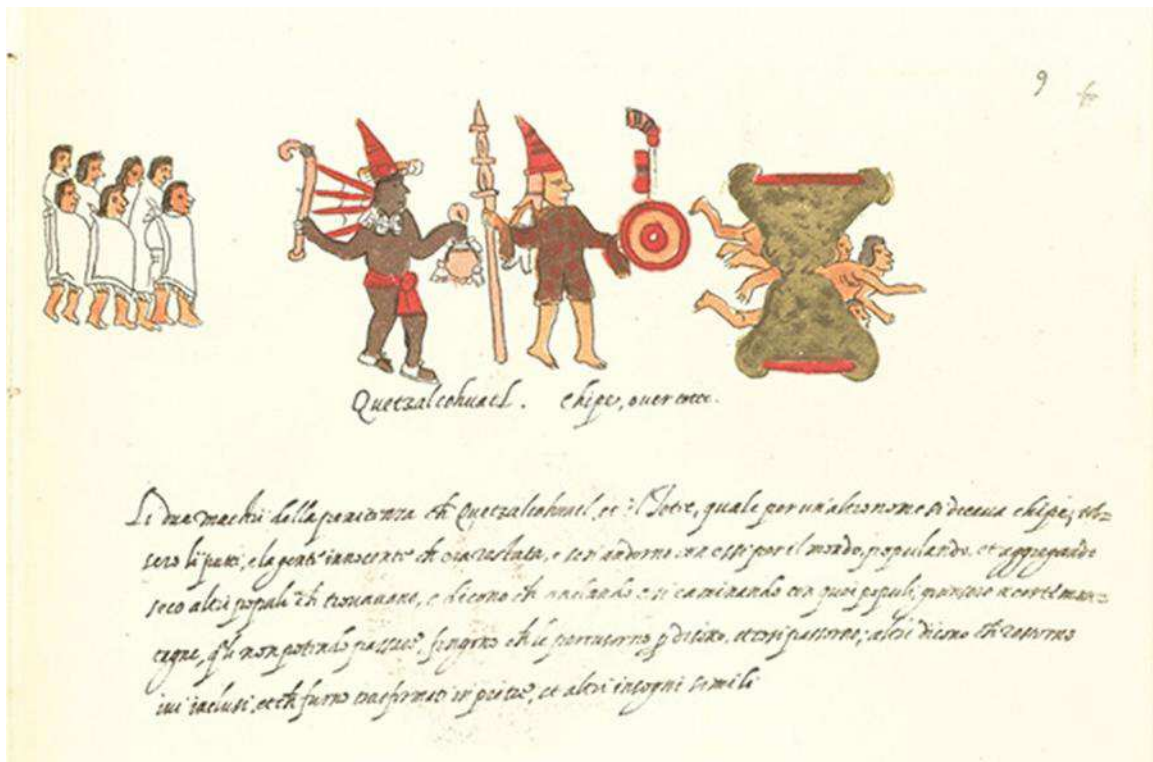 9
Quetzalcohuatl. Chipe, over totec.
Li dua maestri della penitenza ch Quetzalcohuatl, et il Totec, quale per un'altro nome si diceva chipe,
sero li putti, e la gente innocente ch era restata, e se n'andorno con essi por il mondo, populando, et aggregando
seco altri popoli ch trovavano, e dicono ch andando cosi caminando con quei populi, giunsero a certe mon=
tagne, q'le non potendo passare, fingono ch le pertusorno p disotto, et cosi passorno; altri dicono ch restorno
ivi inclusi, et ch furno trasformati in pietre, et altri insogni simili